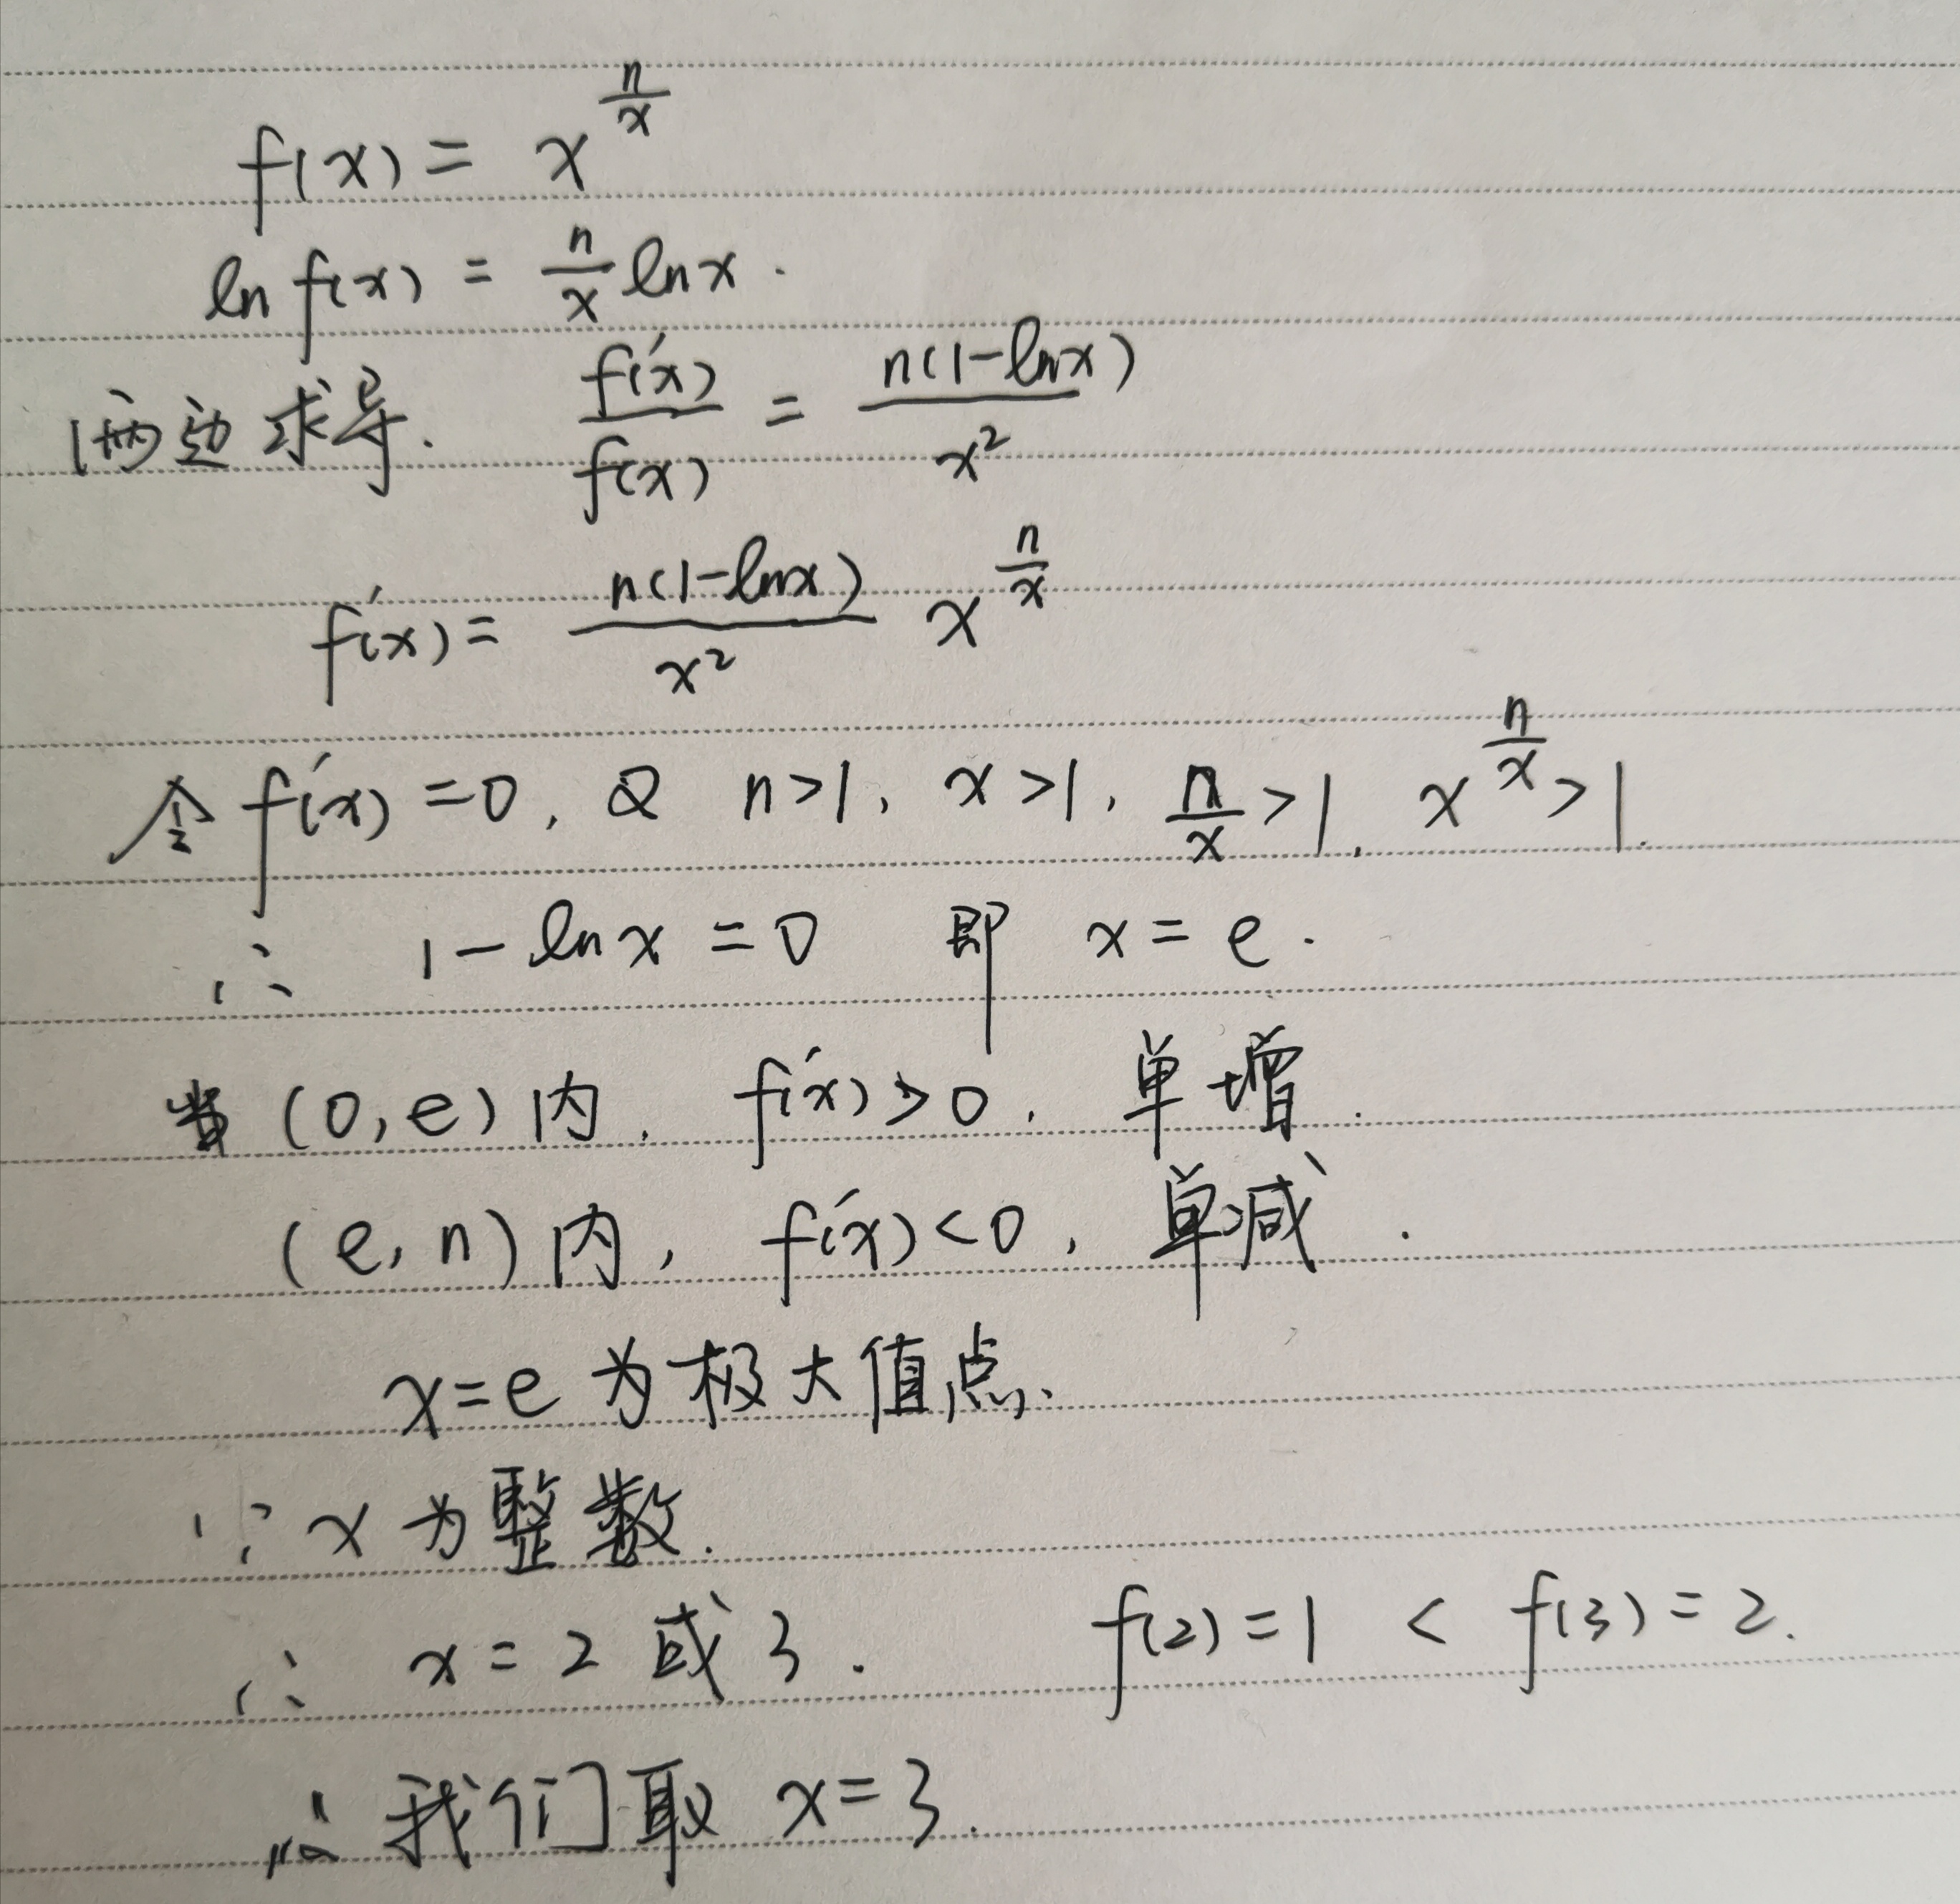 f(x) = x^{n/x}
ln f(x) = n/x ln x .
两边求导. f'(x)/f(x) = n(1-lnx)/x²
f'(x) = n(1-lnx)/x² x^{n/x}
令 f'(x) = 0, 又 n>1, x>1, n/x>1, x^{n/x}>1.
∴ 1-ln x = 0 即 x = e .
当 (0,e) 内, f'(x)>0, 单增.
(e, n) 内, f'(x)<0, 单减 .
x=e 为极大值点.
∵ x 为整数.
∴ x = 2 或 3 . f(2)=1 < f(3)=2.
∴ 我们取 x=3.